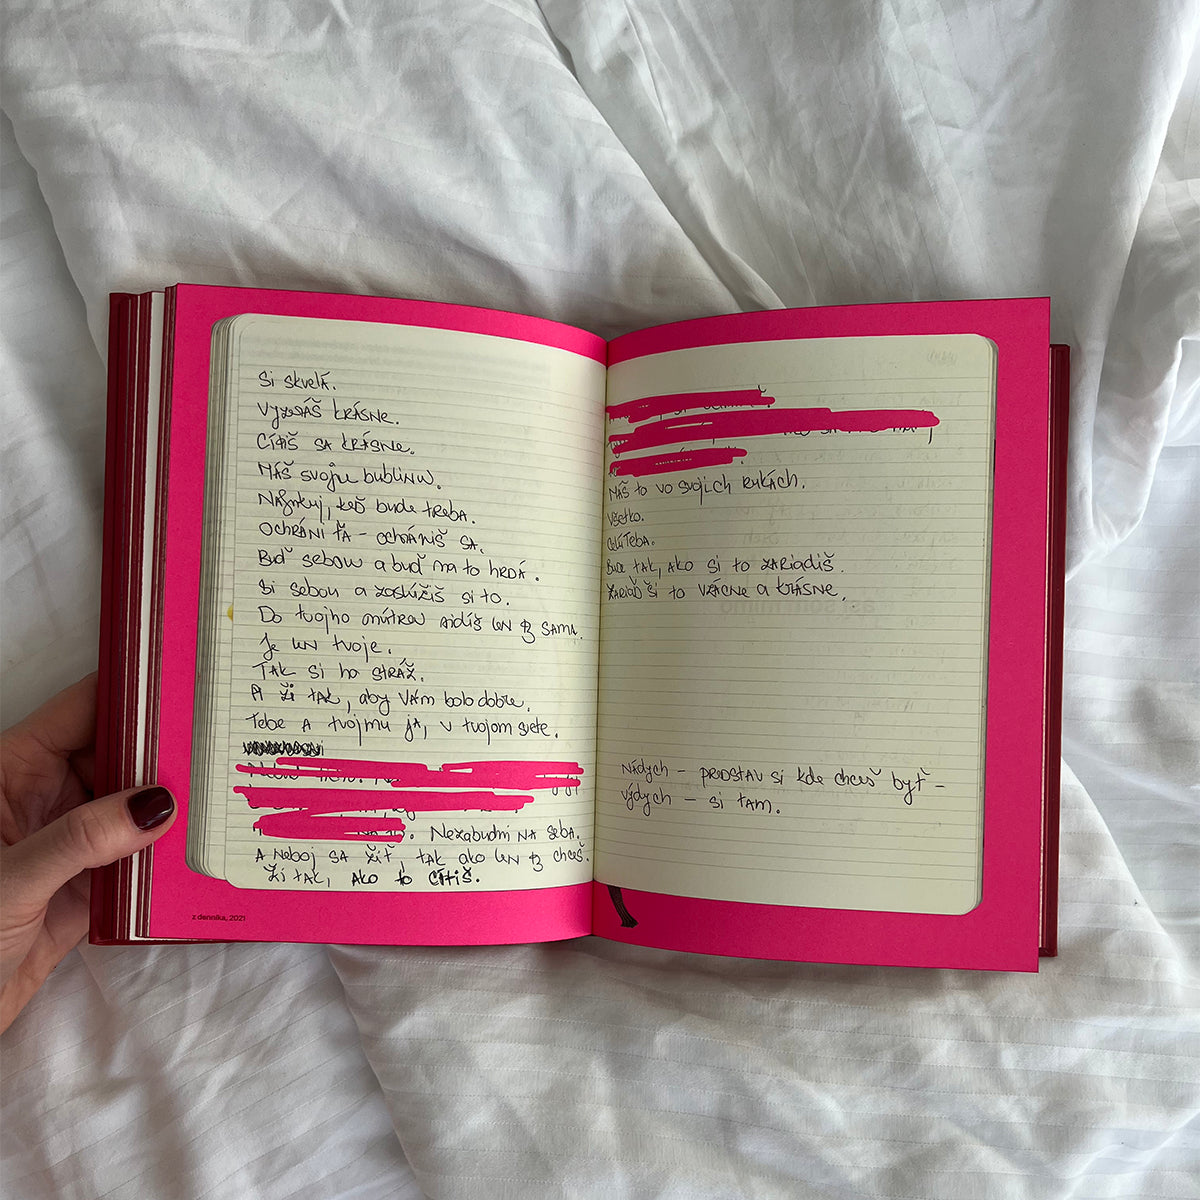 Si skvelá.
Vyzeráš krásne.
Cítiš sa krásne.
Máš svoju bublinu.
Nafúkuj, keď bude treba.
Ochráni ťa – ochrániš sa.
Buď sebou a buď na to hrdá.
Si sebou a zaslúžiš si to.
Do tvojho vnútra vidíš len ty sama.
Je len tvoje.
Tak si ho stráž.
A ži tak, aby vám bolo dobre.
Tebe a tvojmu ja, v tvojom svete.
Nezabudni na seba.
A neboj sa žiť, tak ako len ty chceš.
Ži tak, ako to cítiš.
z denníka, 2021
Máš to vo svojich rukách.
Všetko.
Celú Teba.
Bude tak, ako si to zariadiš.
Zariaď si to vzácne a krásne.
Nádych – predstav si kde chceš byť –
výdych – si tam.